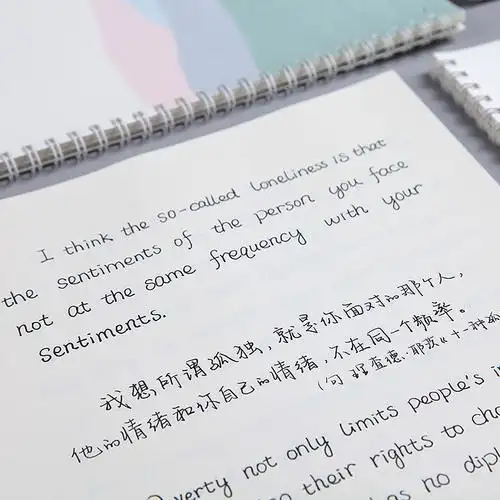 I think the so-called loneliness is that
the sentiments of the person you face
not at the same frequency with your
sentiments.
我想所谓孤独，就是你面对的那个人，
他的情绪和你自己的情绪，不在同一个频率。
（理查德·耶茨《十一种孤
verty not only limits people's i
their rights to cho
no dipl